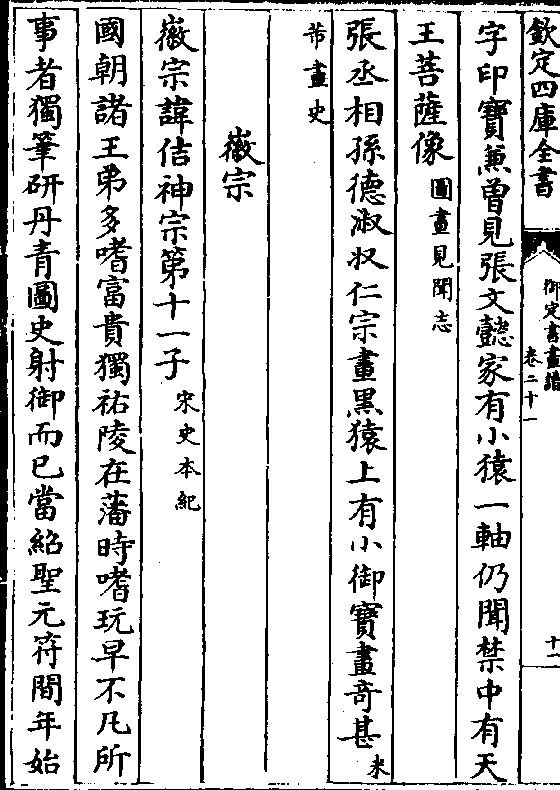 欽定四庫全書
御定書畫譜
卷二十一
十一
字印寶兼曽見張文懿家有小猿一軸仍聞禁中有天
王菩薩像圖畫見聞志
張丞相孫德淑収仁宗畫黒猿上有小御寶畫竒甚米
芾畫史
徽宗
徽宗諱佶神宗第十一子宋史本紀
國朝諸王弟多嗜富貴獨祐陵在藩時嗜玩早不凡所
事者獨筆研丹青圖史射御而已當紹聖元符間年始